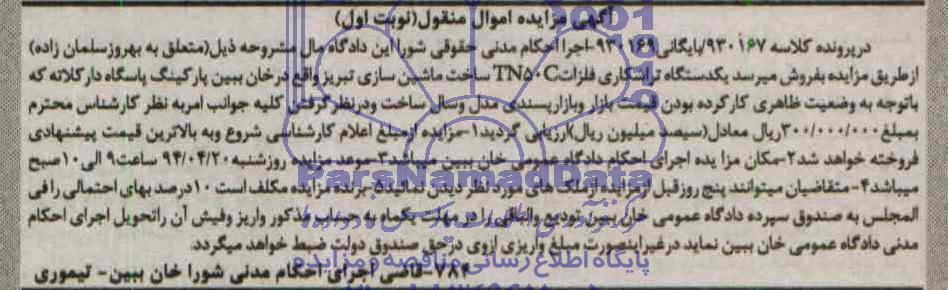 آگهی مزایده اموال منقول(نوبت اول)
در پرونده کلاسه ۹۳۰۱۶۷/بایگانی۹۳۰۱۶۹-اجرا احکام مدنی حقوقی شورا این دادگاه مال مشروحه ذیل(متعلق به بهروزسلمان زاده)
ازطریق مزایده بفروش میرسد یکدستگاه تراشکاری فلزاتTN۵۰C ساخت ماشین سازی تبریز واقع درخان ببین پارکینگ پاسگاه دارکلاته که
باتوجه به وضعیت ظاهری کارکرده بودن قیمت بازار وبازارپسندی مدل وسال ساخت ودرنظرگرفتن کلیه جوانب امربه نظر کارشناس محترم
بمبلغ۳۰۰/۰۰۰/۰۰۰ریال معادل(سیصد میلیون ریال)ارزیابی گردید۱-مزایده ازمبلغ اعلام کارشناسی شروع وبه بالاترین قیمت پیشنهادی
فروخته خواهد شد۲-مکان مزا یده اجرای احکام دادگاه عمومی خان ببین میباشد۳-موعد مزایده روزشنبه۹۴/۰۴/۲۰ ساعت۹ الی۱۰صبح
میباشد۴-متقاضیان میتوانند پنج روزقبل ازمزایده ازملک های مورد نظر دیدن نمایند۵-برنده مزایده مکلف است ۱۰درصد بهای احتمالی را فی
المجلس به صندوق سپرده دادگاه عمومی خان ببین تودیع والباقی را در مهلت یکماه به حساب مذکور واریز وفیش آن راتحویل اجرای احکام
مدنی دادگاه عمومی خان ببین نماید درغیراینصورت مبلغ واریزی ازوی درحق صندوق دولت ضبط خواهد میگردد.
۷۸۴-قاضی اجرای احکام مدنی شورا خان ببین- تیموری
ParsNamadData
پایگاه اطلاع رسانی مناقصه و مزایده